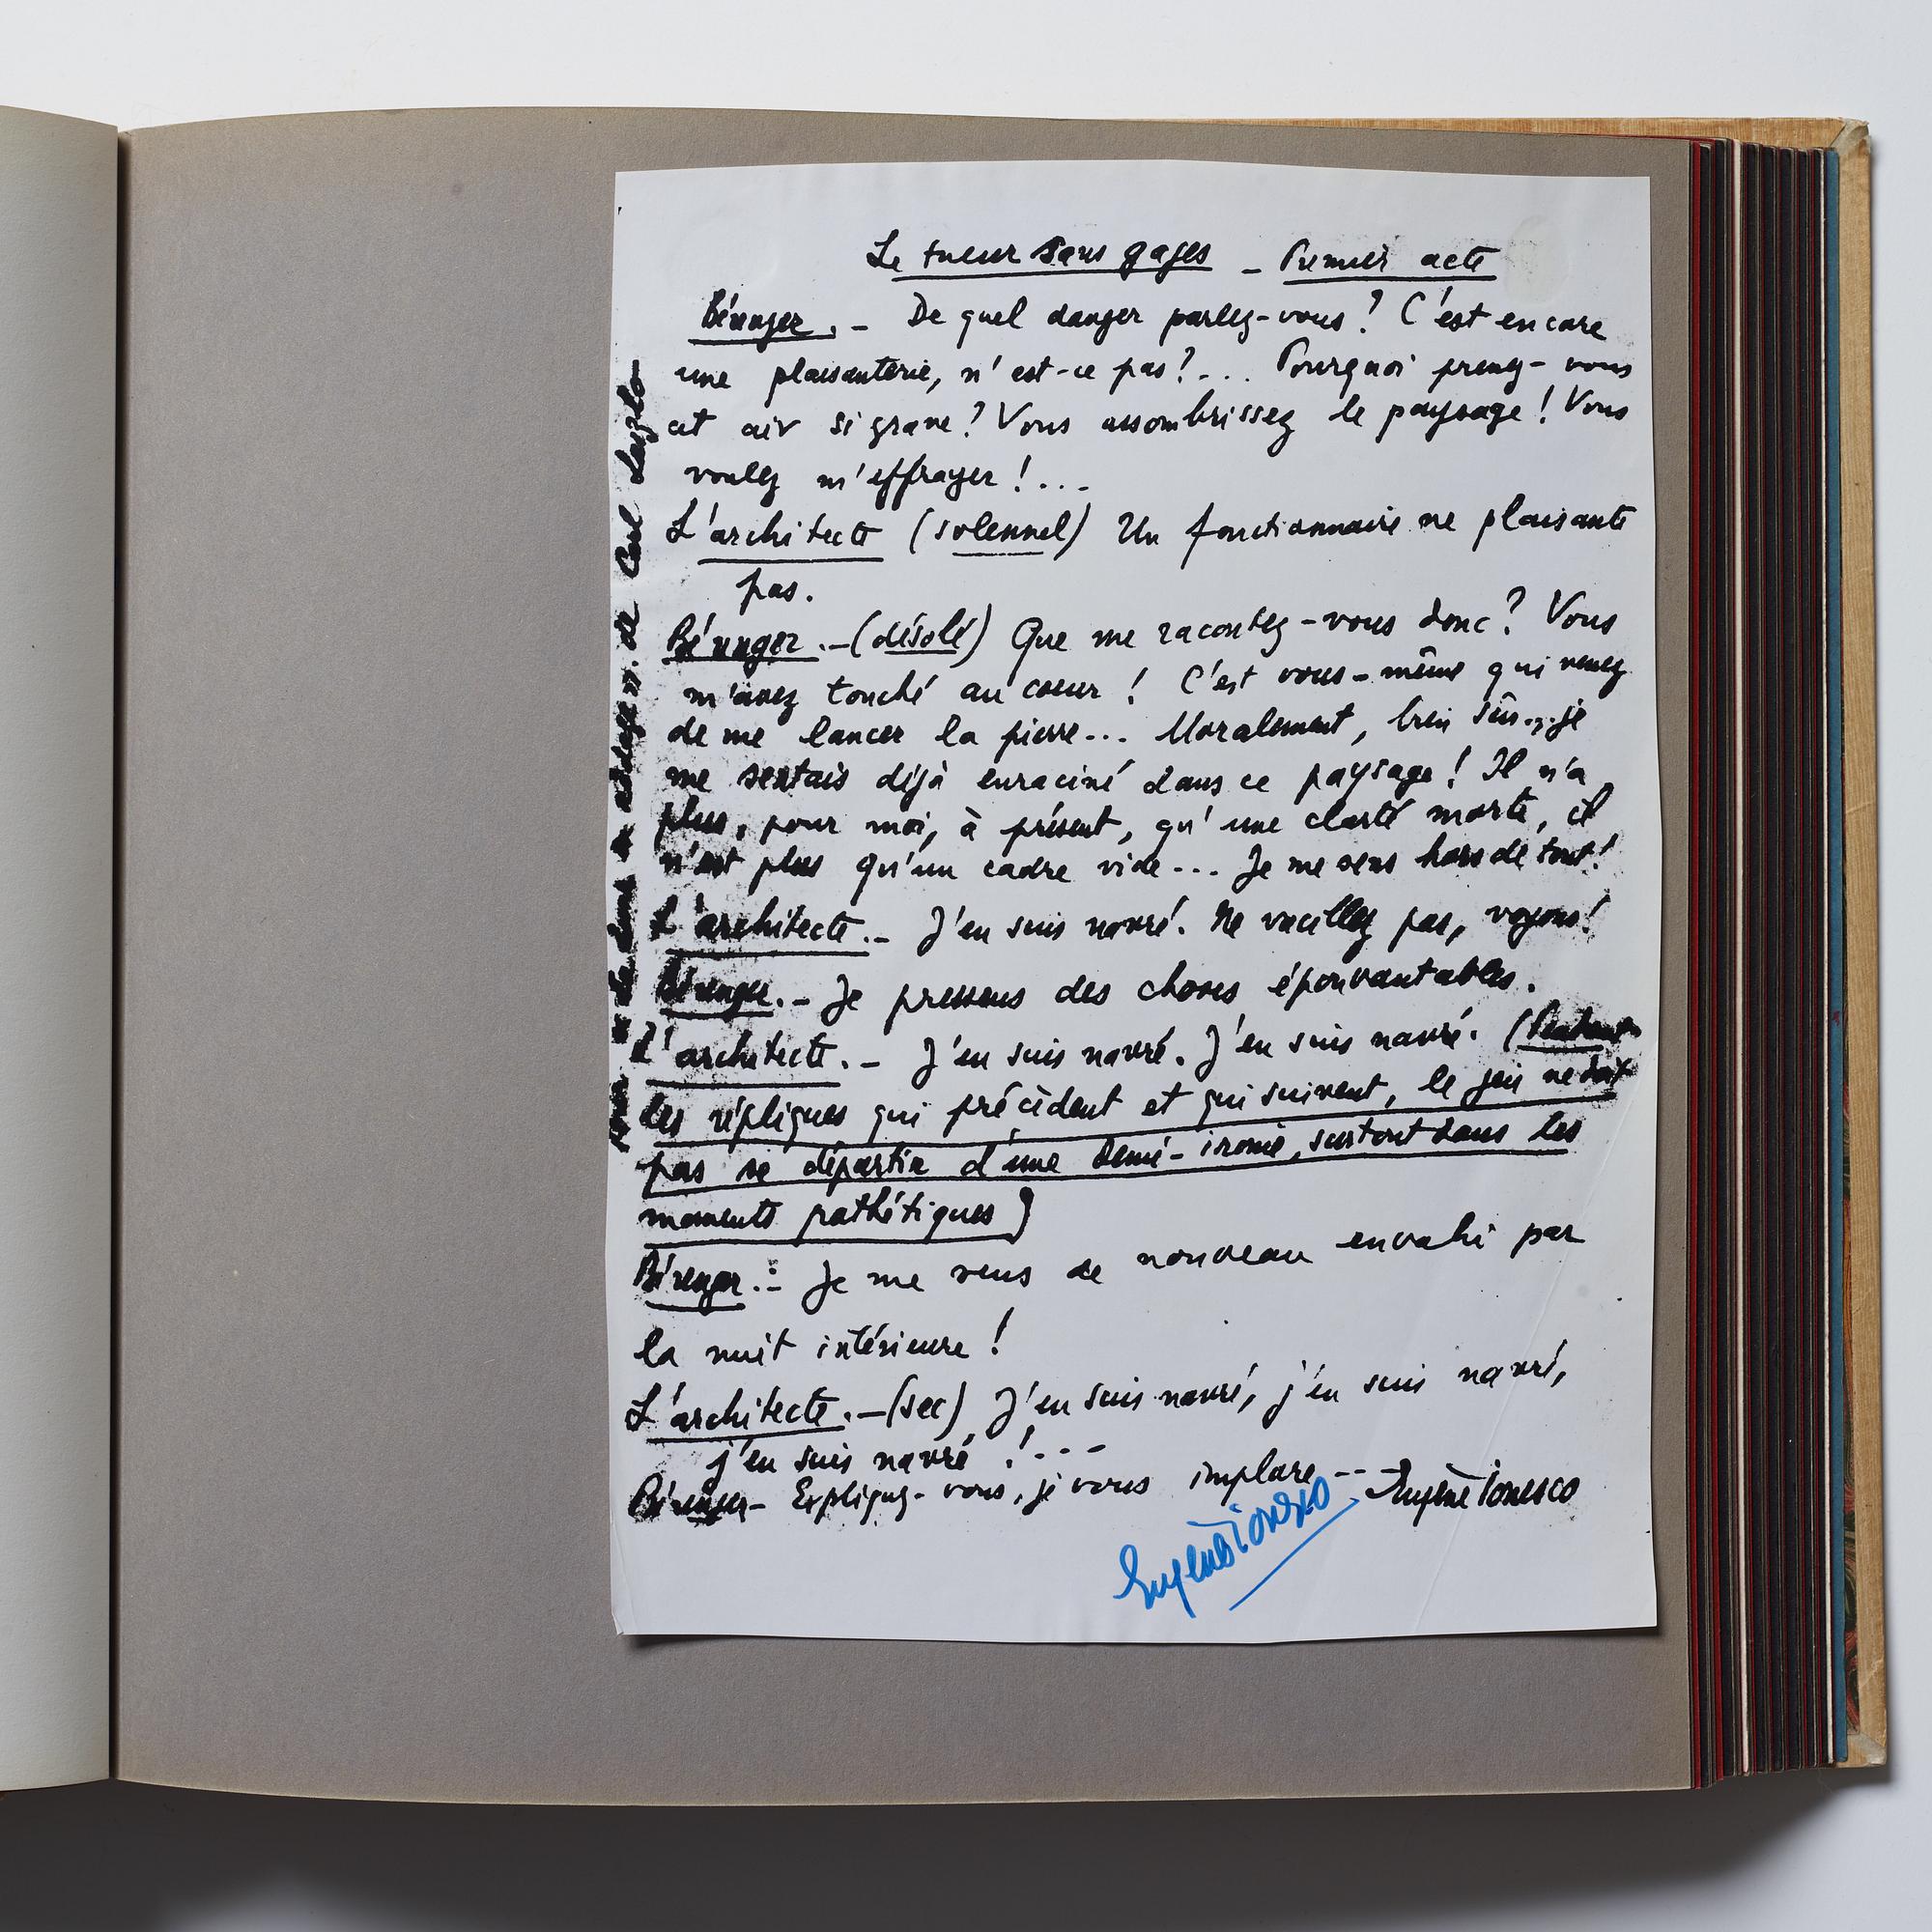 Le tueur sans gages - Premier acte
Bérenger. - De quel danger parlez-vous? C'est encore
une plaisanterie, n'est-ce pas?... Pourquoi prenez-vous
cet air si grave? Vous assombrissez le paysage! Vous
voulez m'effrayer!...
L'architecte (solennel) Un fonctionnaire ne plaisante
pas.
Bérenger. - (désolé) Que me racontez-vous donc? Vous
m'avez touché au coeur! C'est vous-même qui venez
de me lancer la pierre... Moralement, bien sûr... je
me sentais déjà enraciné dans ce paysage! Il n'a
plus, pour moi, à présent, qu'une clarté morte, il
n'est plus qu'un cadre vide... Je me sens hors de tout!
L'architecte. - J'en suis navré. Ne vacillez pas, voyons!
Bérenger. - Je pressens des choses épouvantables.
L'architecte. - J'en suis navré. J'en suis navré. (Pendant
les répliques qui précèdent et qui suivent, le jeu ne doit
pas se départir d'une demi-ironie, surtout dans les
moments pathétiques)
Bérenger. - Je me sens de nouveau envahi par
la nuit intérieure!
L'architecte. - (sec) J'en suis navré, j'en suis navré,
j'en suis navré!...
Bérenger - Expliquez-vous, je vous implore --
Eugène Ionesco
Eugène Ionesco
de Carl Laszlo